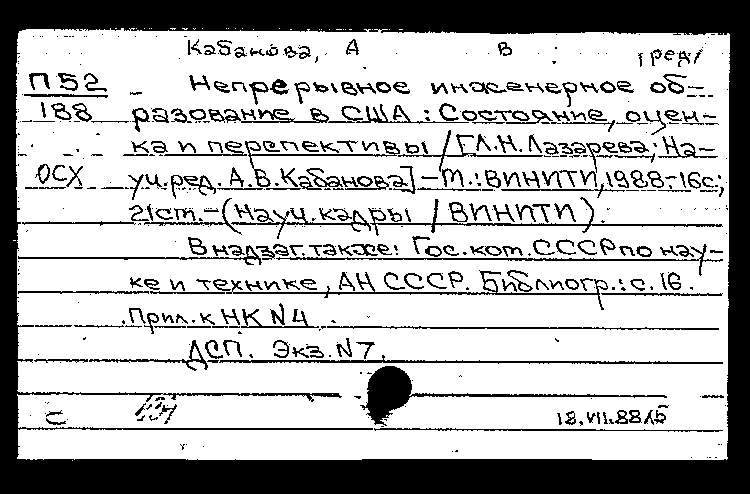 Кабанова, А В /ред/
П52 Непрерывное инженерное об-
188 разование в США: Состояние, оцен-
ка и перспективы / Г.Л.Н. Лазарева; На-
ОСХ уч. ред. А.В. Кабанова] - М.: ВИНИТИ, 1988.-16с;
21см.-(Науч. кадры / ВИНИТИ).
В надзаг. также: Гос. ком. СССР по нау-
ке и технике, АН СССР. Библиогр.: с. 16.
Прил. к НК N4.
ДСП. Экз. N7.
с 18.VII.88